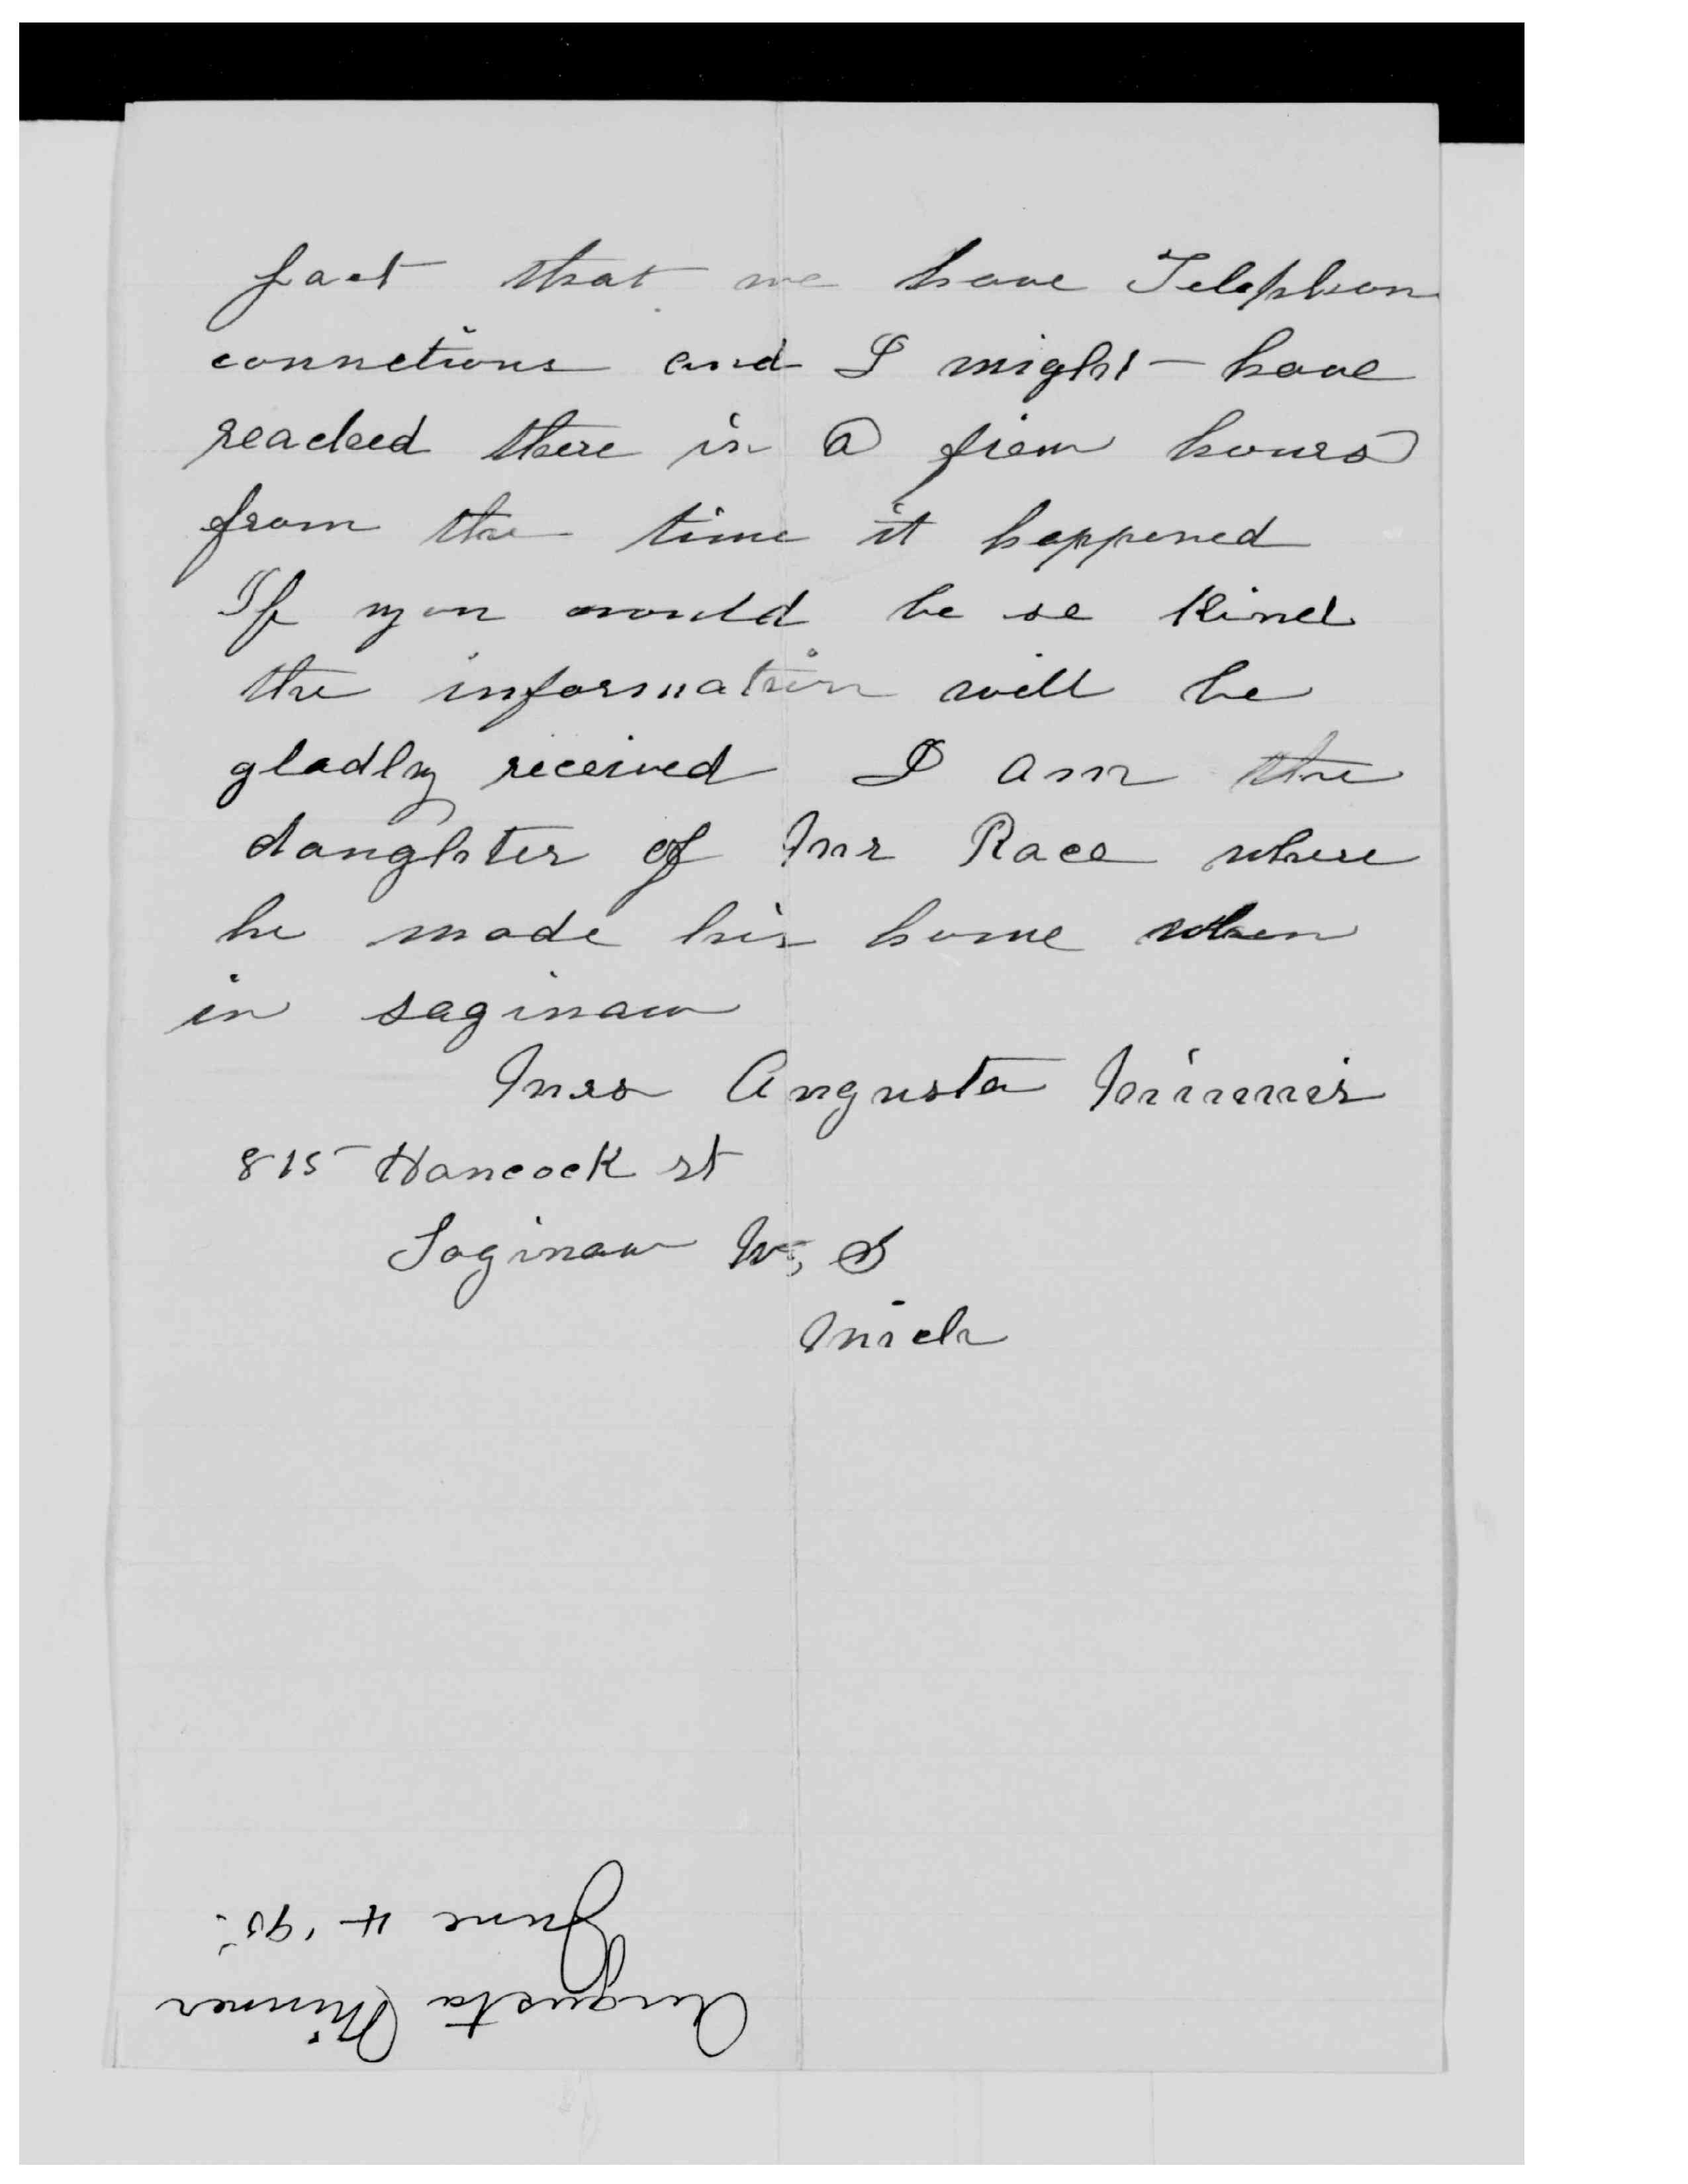 fact that we have Telephon
connctions and I might - have
reached there in a fiew hours
from the time it happened
If you would be so kind
the information will be
gladly received I am the
daughter of Mr Race where
he made his home when
in saginaw
Mrs Augusta Minnis
815 Hancock st
Saginaw W, S
Mich
Augusta Minner
June 4 '95.